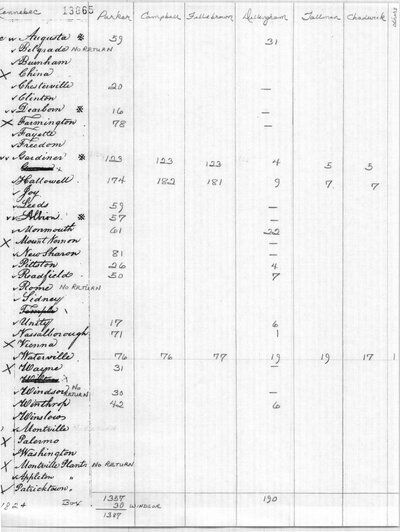 Kennebec 13865 Parker Campbell Fullebrown Dillingham Tallman Chadwick
v v Augusta * 59 31
v Belgrade NO RETURN
v Burnham
X China
v Chesterville 20 —
v Clinton
v Dearborn * 16 —
X Farmington 78 —
v Fayette
v Freedom
v v Gardiner * 123 123 123 4 5 5
v Hallowell 174 182 181 9 7 7
v Joy
v Leeds 59 —
v v Albion * 57 —
v Monmouth 61 22
X Mount Vernon
v New Sharon 81 —
v Pittston 26 4
v Readfield 50 7
v Rome NO RETURN
v Sidney
Temple
v Unity 17 6
v Vassalborough 71 1
X Vienna
v Waterville 76 76 77 19 19 17 1
X Wayne 31 —
Wilton
v Windsor NO RETURN 30 —
v Winthrop 42 6
v Winslow
v Montville
X Palermo
v Washington
X Montville Plant. NO RETURN
v Appleton "
v Patricktown "
1824 Box 1357 190
30 WINDSOR
1387